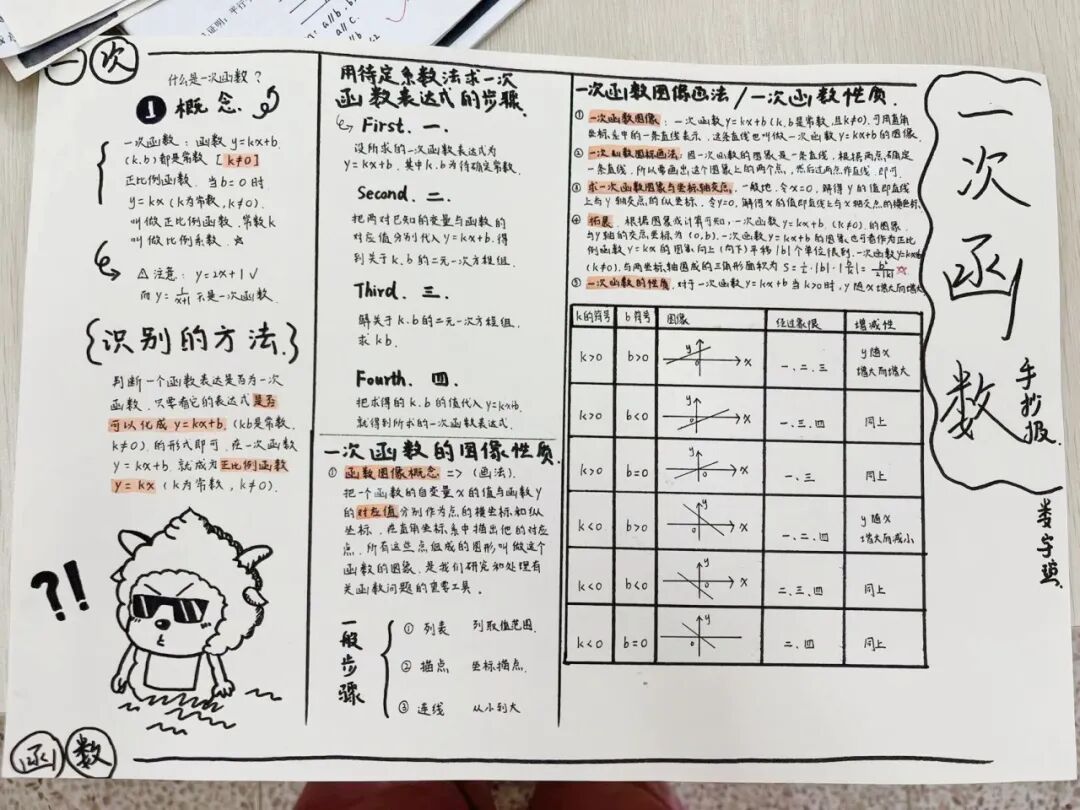 一次
什么是一次函数?
1 概念.
一次函数: 函数 y=kx+b
(k.b)都是常数 [k≠0]
正比例函数. 当b=0时.
y=kx(k为常数.k≠0).
叫做正比例函数.常数k
叫做比例系数.☆
⚠ 注意: y=2x+1 √
而 y=1/(x+1) 不是一次函数.
{识别的方法.}
判断一个函数表达是否为一次
函数.只要看它的表达式是否
可以化成y=kx+b.(kb是常数.
k≠0).的形式即可.在一次函数
y=kx+b.就成为正比例函数
y=kx (k为常数,k≠0).
?!
函数
用待定系数法求一次
函数表达式的步骤.
First.一.
设所求的一次函数表达式为
y=kx+b.其中k.b为待确定常数.
Second.二.
把两对已知的变量与函数的
对应值分别代入y=kx+b.得
到关于k.b的二元一次方程组.
Third.三.
解关于k.b的二元一次方程组.
求kb.
Fourth.四.
把求得的k.b的值代入y=kx+b.
就得到所求的一次函数表达式.
一次函数的图像性质.
① 函数图像概念 => (画法).
把一个函数的自变量x的值与函数y
的对应值分别作为点的横坐标和纵
坐标.在直角坐标系中描出他的对应
点.所有这些点组成的图形叫做这个
函数的图象.是我们研究和处理有
关函数问题的重要工具.
一般步骤
① 列表 列取值范围.
② 描点 坐标描点.
③ 连线 从小到大
一次函数图像画法/一次函数性质.
① 一次函数图像: 一次函数y=kx+b(k.b是常数,且k≠0).可用直角
坐标系中的一条直线表示.这条直线也叫做一次函数y=kx+b的图像.
② 一次函数图标画法:因一次函数的图象是一条直线,根据两点确定
一条直线.所以要画出这个图象上的两个点,然后过两点作直线.即可.
③ 求一次函数图象与坐标轴交点.一般地.令x=0.解得y的值即直线
上与y轴交点的纵坐标.令y=0.解得x的值即直线上与x轴交点的横坐标.
④ 拓展. 根据图象或计算可知.一次函数y=kx+b.(k≠0).的图象.
与y轴的交点坐标为(0,b).一次函数y=kx+b的图象也可看作为正比
例函数y=kx的图象向上(向下)平移|b|个单位得到.一次函数y=kx+b
(k≠0).与两坐标轴围成的三角形面积为S=½·|b|·|b/k|=b²/2|k|☆
⑤ 一次函数的性质.对于一次函数y=kx+b当k>0时,y随x增大而增大
k的符号 b符号 图像 经过象限 增减性
k>0 b>0 y x 0 一.二.三 y随x
增大而增大
k>0 b<0 y x 0 一.三.四 同上
k>0 b=0 y x 0 一.三 同上
k<0 b>0 y x 0 一.二.四 y随x
增大而减小
k<0 b<0 y x 二.三.四 同上
k<0 b=0 y 0 二.四 同上
一次函数
手抄报.